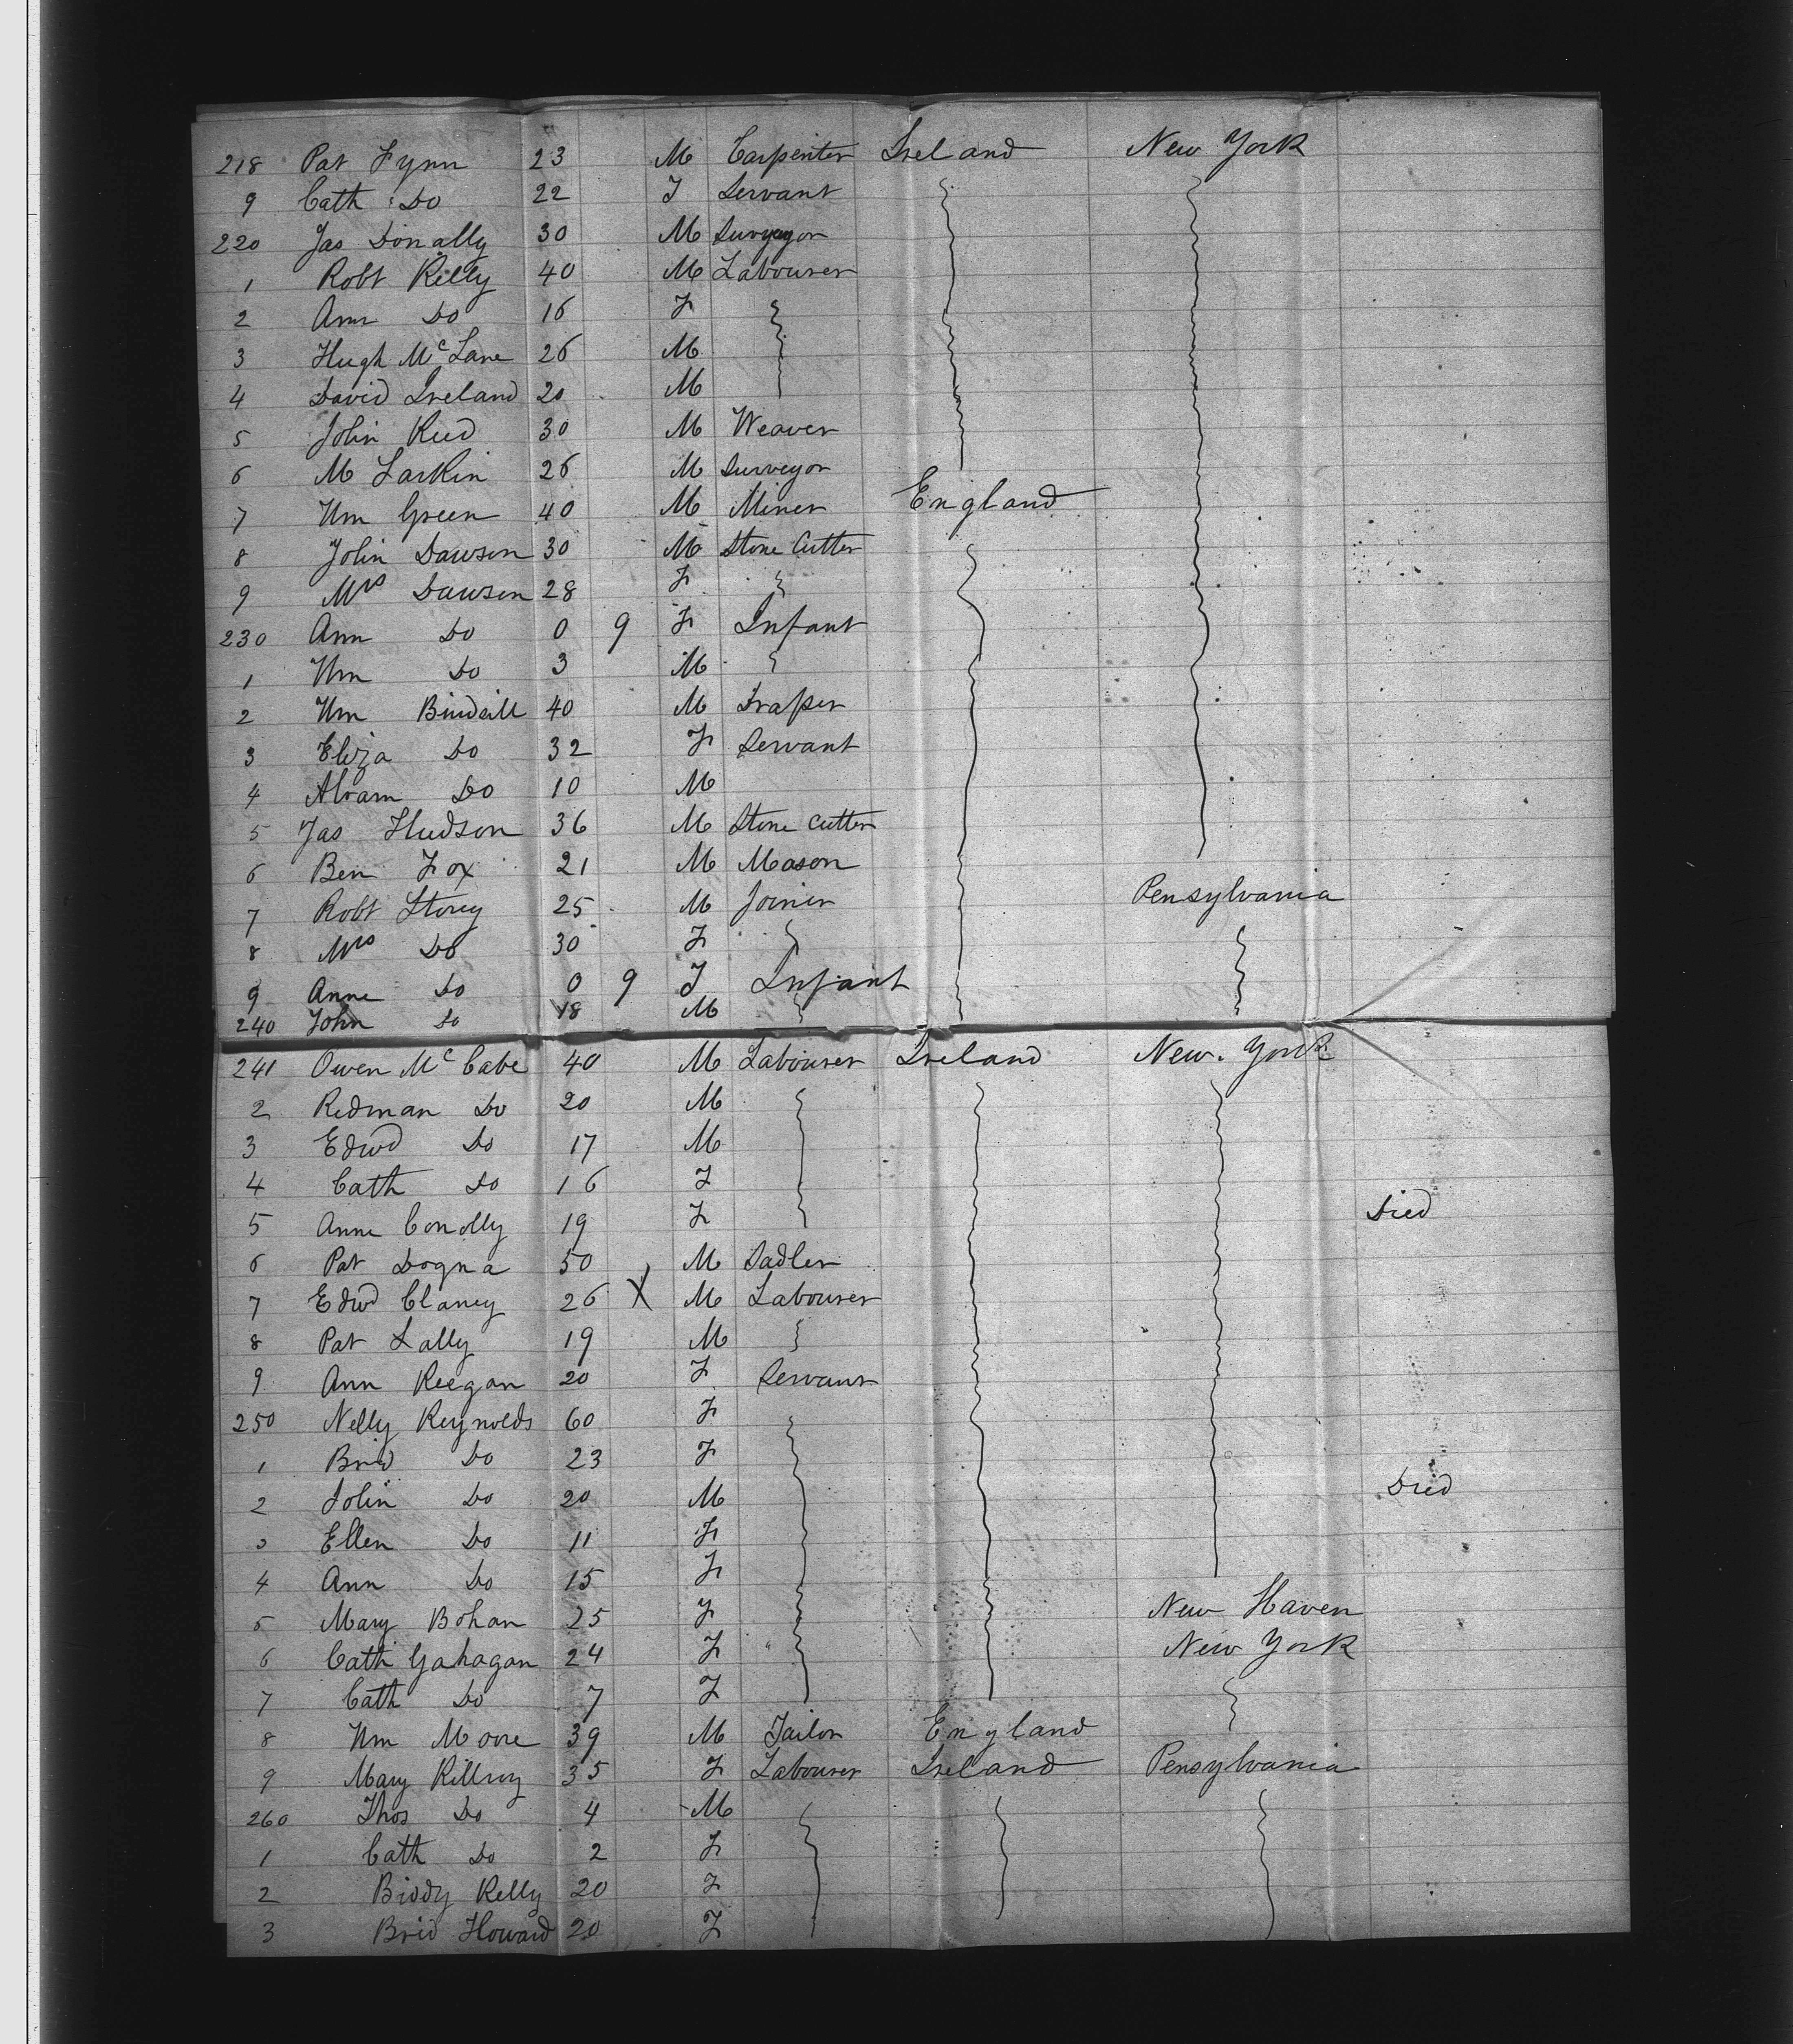 218 Pat Fynn 23 M Carpenter Ireland New York
9 Cath Do 22 F Servant
220 Jas Donally 30 M Surveyor
1 Robt Kelly 40 M Labourer
2 Ann Do 16 F
3 Hugh McLane 26 M
4 David Ireland 20 M
5 John Reed 30 M Weaver
6 M Larkin 26 M Surveyor
7 Wm Green 40 M Miner England
8 John Dawson 30 M Stone Cutter
9 Mrs Dawson 28 F
230 Ann Do 0 9 F Infant
1 Wm Do 3 M
2 Wm 40 M Draper
3 Eliza Do 32 F Servant
4 Abram Do 10 M
5 Jas Hudson 36 M Stone Cutter
6 Ben Fox 21 M Mason
7 Robt Storey 25 M Joiner Pensylvania
8 Mrs Do 30 F
9 Anne Do 0 9 F Infant
240 John Do 18 M
241 Owen McCabe 40 M Labourer Ireland New York
2 Redman Do 20 M
3 Edwd Do 17 M
4 Cath Do 16 F
5 Anne Conolly 19 F Died
6 Pat Dogna 50 M Sadler
7 Edwd Clancy 26 X M Labourer
8 Pat Lally 19 M
9 Ann Keegan 20 F Servant
250 Nelly Reynolds 60 F
1 Brid Do 23 F
2 John Do 20 M Died
3 Ellen Do 11 F
4 Ann Do 15 F
5 Mary Bohan 25 F New Haven
6 Cath Gahagan 24 F New York
7 Cath Do 7 F
8 Wm Moore 39 M Tailor England
9 Mary Killroy 35 F Labourer Ireland Pensylvania
260 Thos Do 4 M
1 Cath Do 2 F
2 Biddy Kelly 20 F
3 Brid Howard 20 F